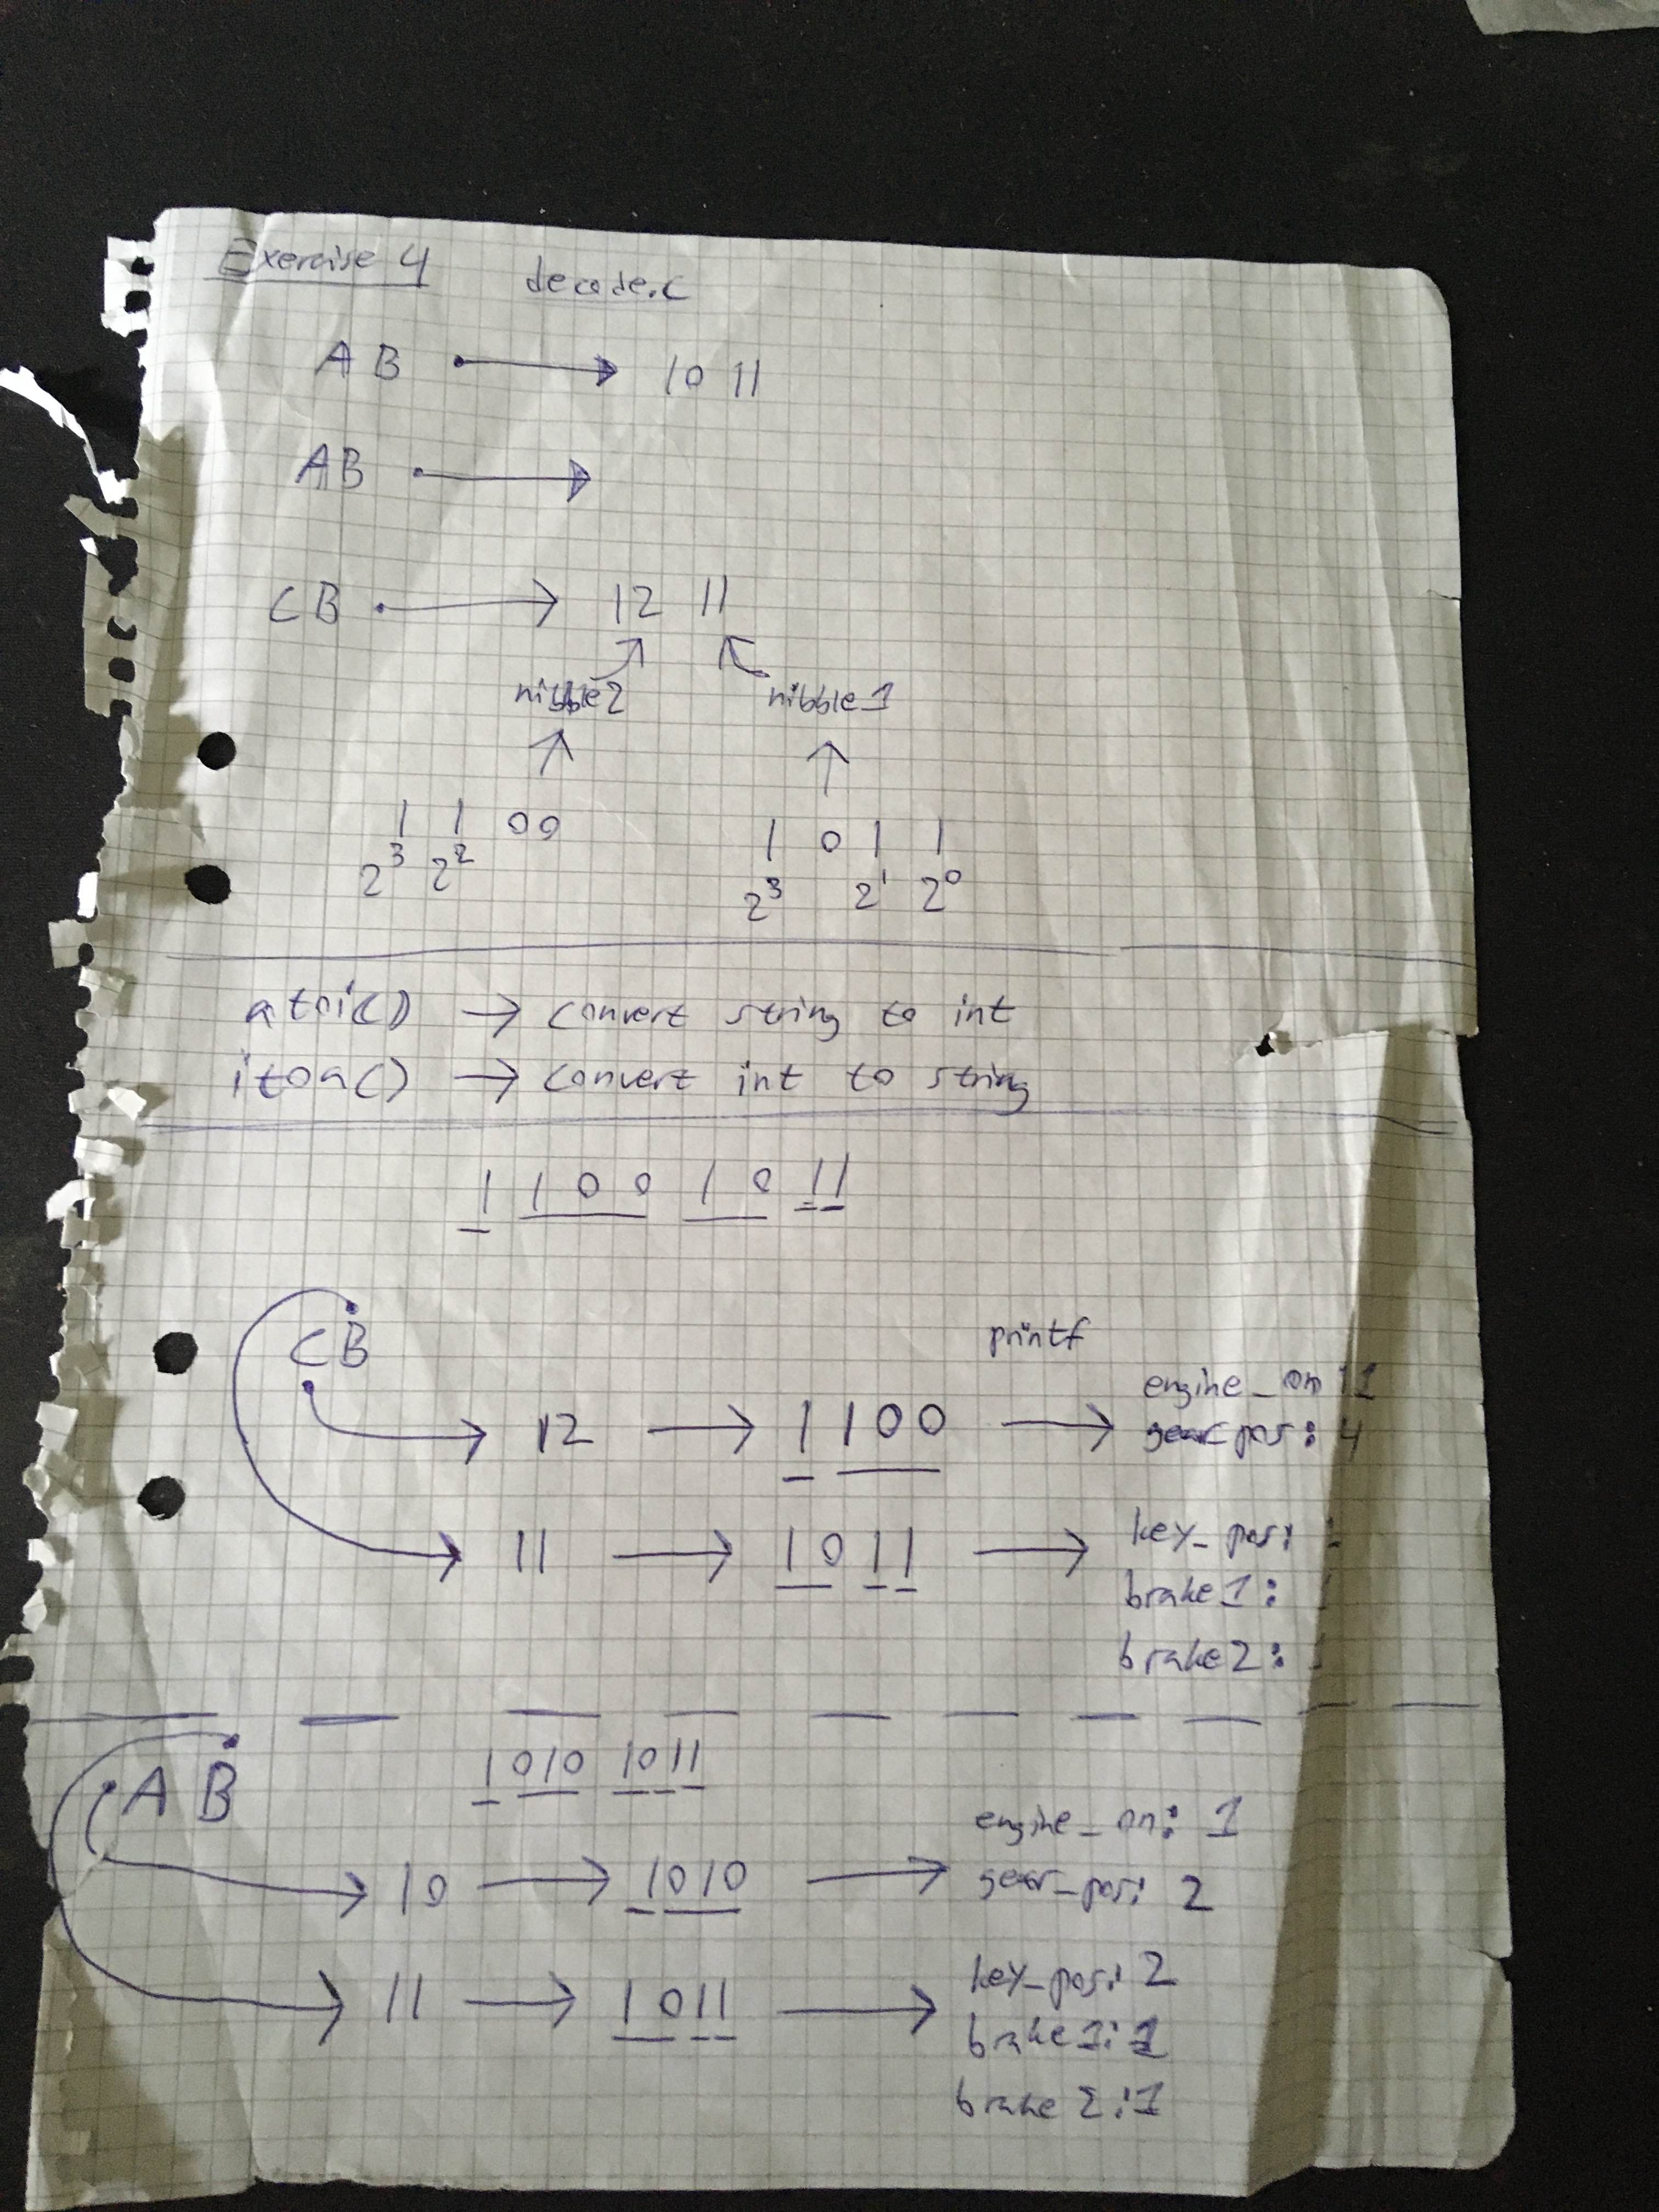 Exercise 4 decode.c
AB → 10 11
AB →
CB → 12 11
nibble2 nibble1
1 1 00 1 0 1 1
2³ 2² 2³ 2¹ 2⁰
atoi() → convert string to int
itoa() → convert int to string
1 1 0 0 1 0 1 1
CB printf
engine_on
12 → 1100 → gear pos: 4
11 → 1011 → key_pos:
brake1:
brake2:
AB 1010 1011
engine_on: 1
10 → 1010 → gear_pos: 2
11 → 1011 → key_pos: 2
brake1: 1
brake2: 1